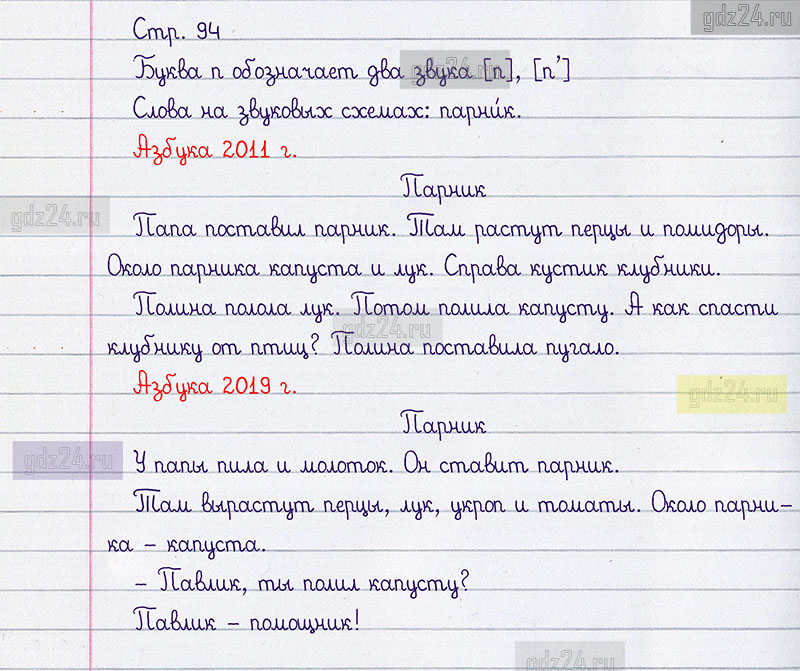 gdz24.ru
Стр. 94
Буква п обозначает два звука [п], [п']
gdz24.ru
Слова на звуковых схемах: парни́к.
Азбука 2011 г.
Парник
gdz24.ru
Папа поставил парник. Там растут перцы и помидоры.
Около парника капуста и лук. Справа кустик клубники.
Полина полола лук. Потом полила капусту. А как спасти
gdz24.ru
клубнику от птиц? Полина поставила пугало.
Азбука 2019 г.
gdz24.ru
Парник
gdz24.ru
У папы пила и молоток. Он ставит парник.
Там вырастут перцы, лук, укроп и томаты. Около парни-
ка – капуста.
– Павлик, ты полил капусту?
Павлик – помощник!
gdz24.ru